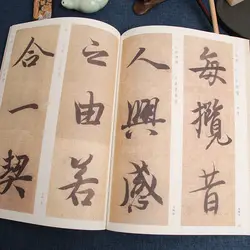 每攬昔
人興感
之由若
合一契